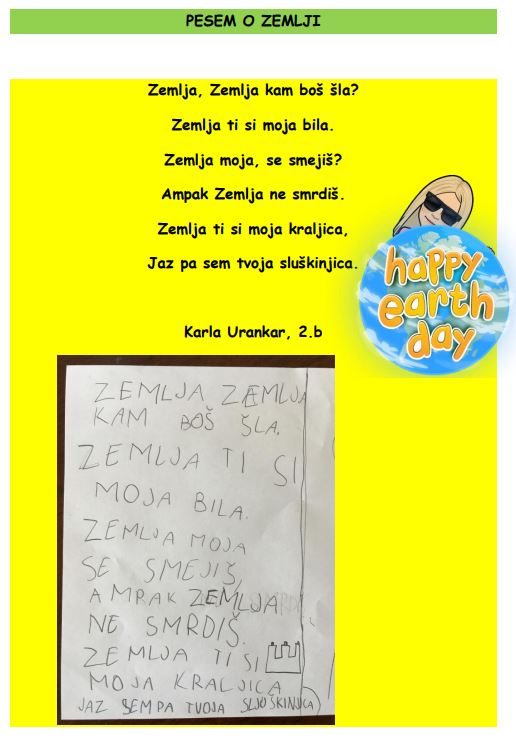 PESEM O ZEMLJI
Zemlja, Zemlja kam boš šla?
Zemlja ti si moja bila.
Zemlja moja, se smejiš?
Ampak Zemlja ne smrdiš.
Zemlja ti si moja kraljica,
Jaz pa sem tvoja sluškinjica.
happy
earth
day
Karla Urankar, 2.b
ZEMLJA ZEMLJA
KAM BOŠ ŠLA.
ZEMLJA TI SI
MOJA BILA.
ZEMLJA MOJA
SE SMEJIŠ,
AMPAK ZEMLJA
NE SMRDIŠ.
ZEMLJA TI SI
MOJA KRALJICA
JAZ SEM PA TVOJA SLUŠKINJICA